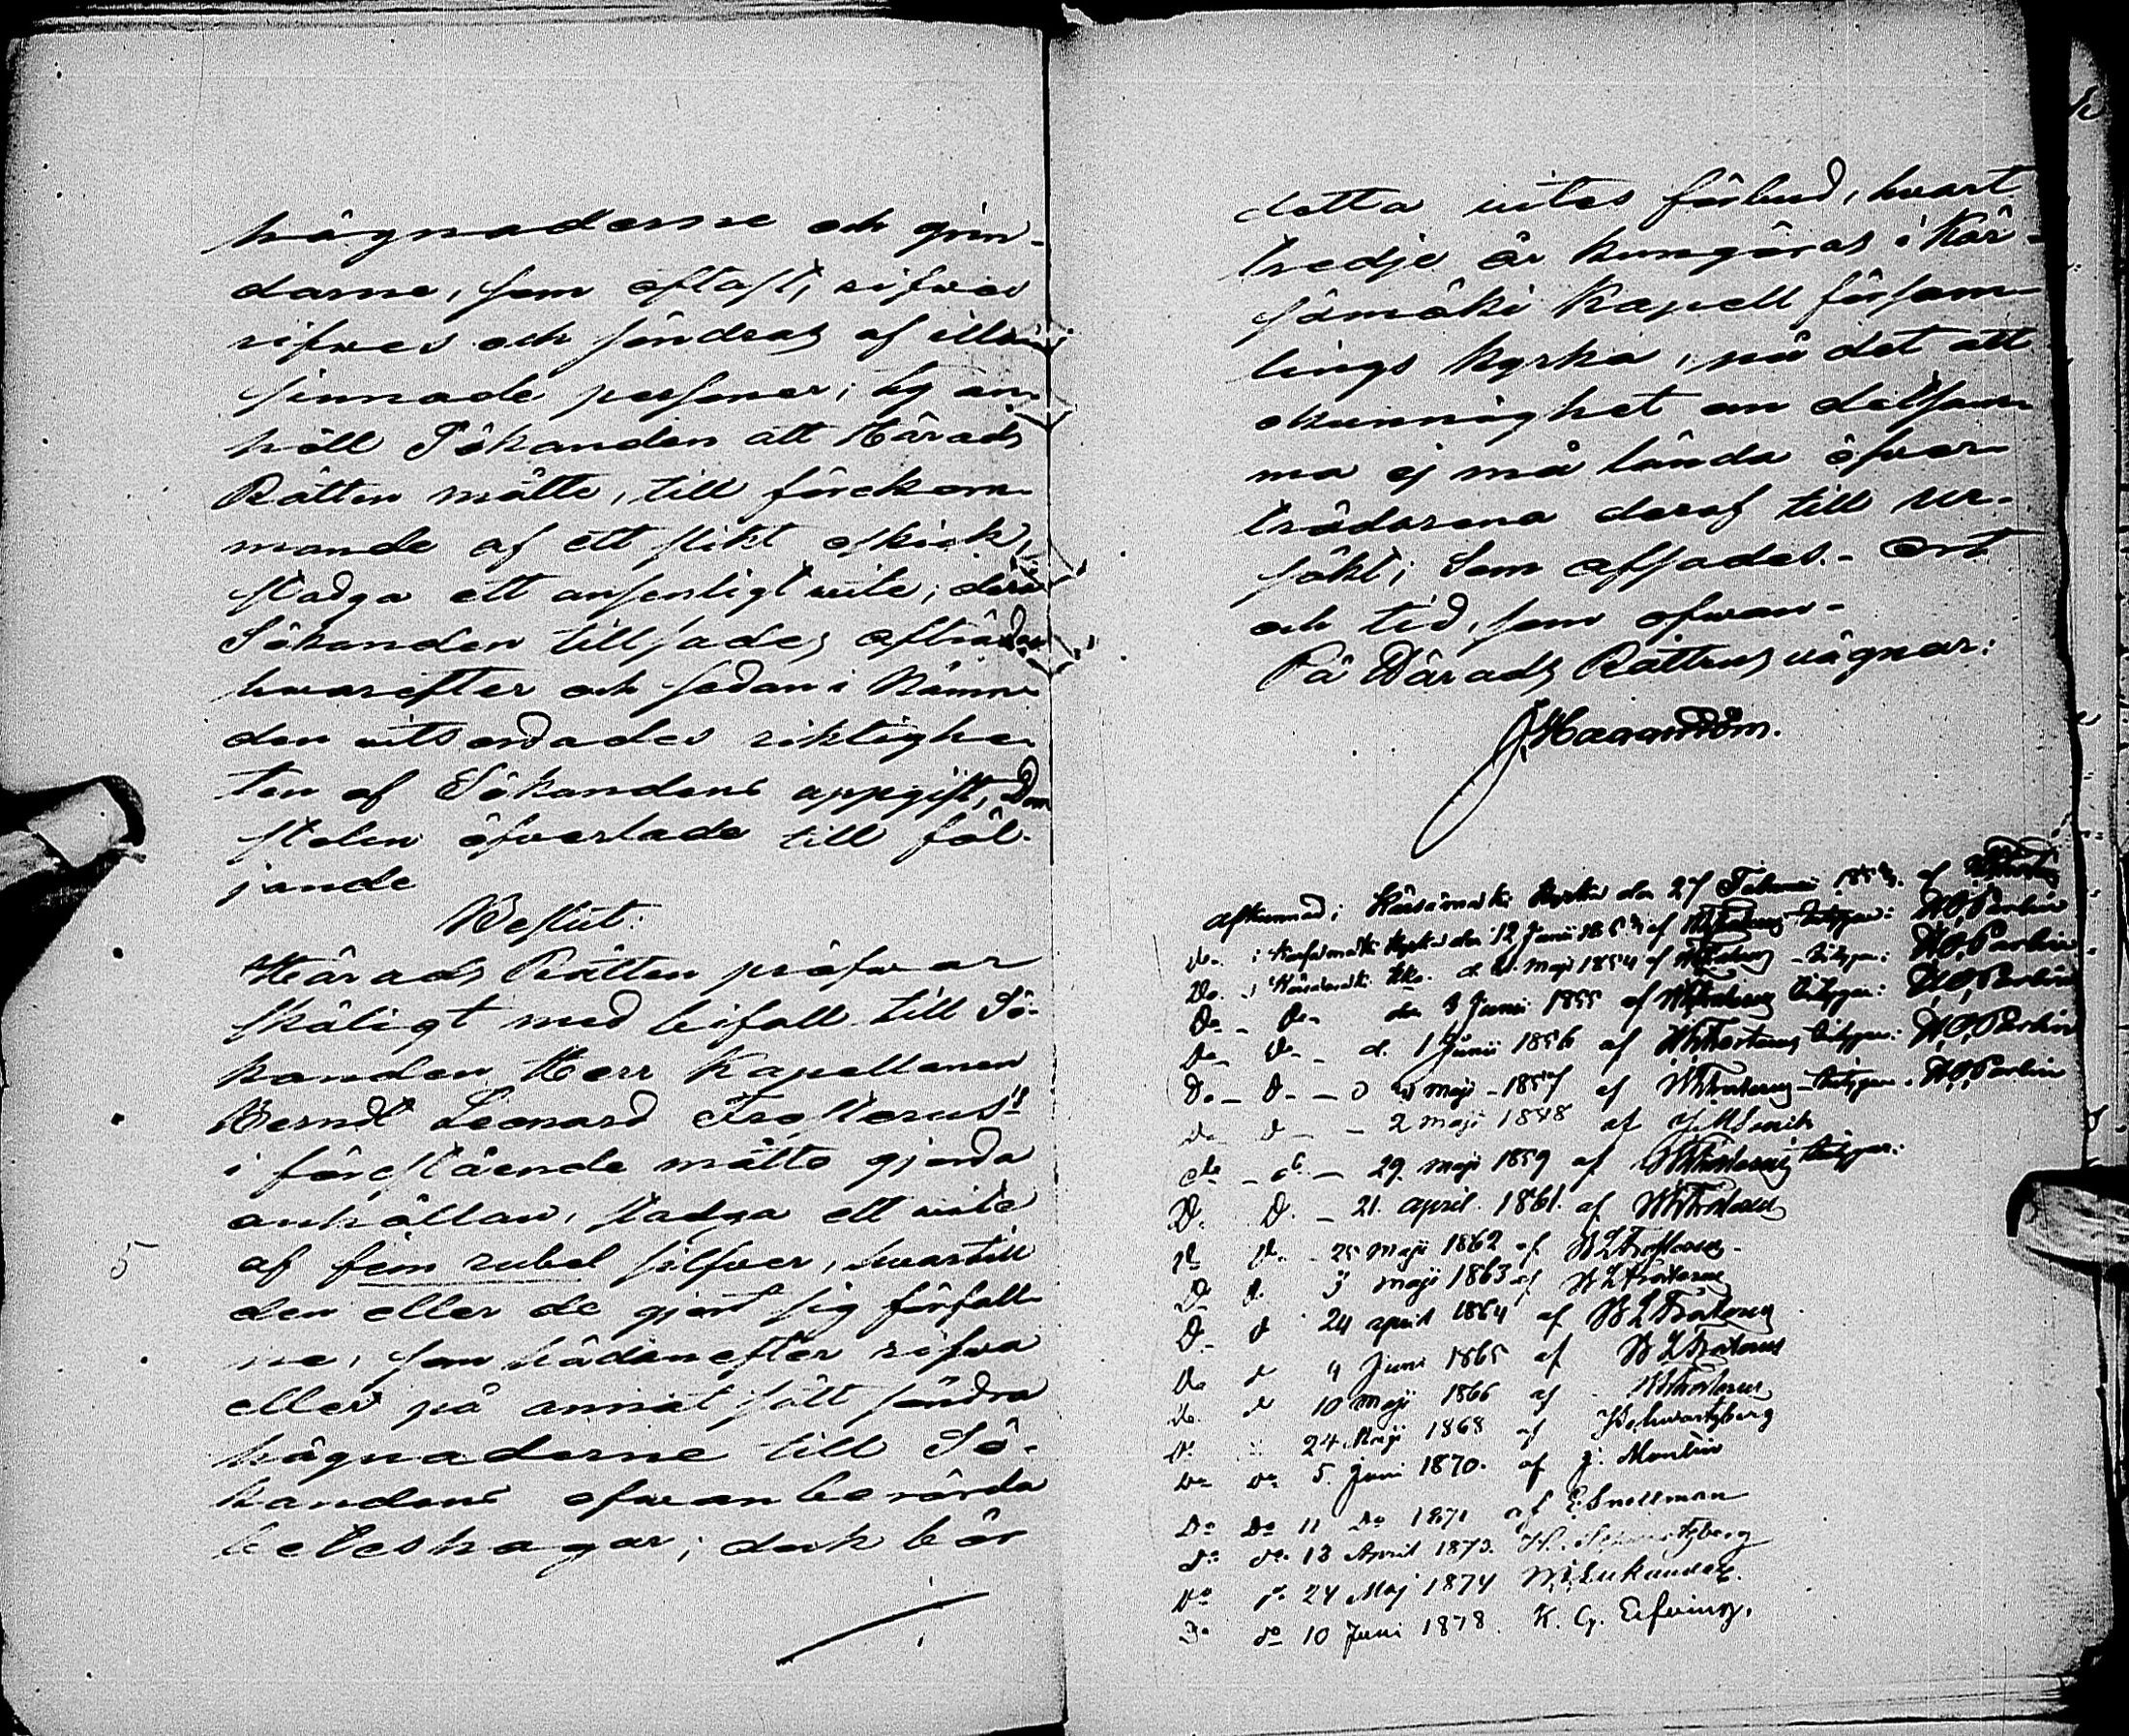 hägnaderne och grin-
darne, som oftast, rifves
rifves och söndras af illa
sinnade personer; ty an-
höll Sökanden att Härads
Rätten måtte, till förekom-
mande af ett slikt oskick,
stadga ett ansenligt vite; 
Sökanden tillsades afträda
hvarefter och sedan i Nämn-
den vitsordades riktighe-
ten af Sökandens uppgift, Dom
stolen öfverlade till föl-
jande
Beslut:
Härads Rätten pröfvar
skäligt med bifall till Sö-
kanden Herr Kapellanen
Berndt Leonard Frosterus's
i förestående måtto gjorda
anhållan, stadga ett vite
5
af fem rubel silfver, hvartill
den eller de gjort sig förfall-
ne, som hädanefter rifva
eller på annat sätt söndra
hägnaderne till Sö-
kandens ofvanberörda
beteshagar; dock bör
detta vites förbud, hvart
tredje år kungöras i Kär-
sämäki Kapell försam-
lings kyrka, på det att
okunnighet om detsam-
ma ej må lända öfver-
trädarena deraf till ur-
säkt; Som afsades. Ort
och tid, som ofvan.
På Härads Rättens vägnar:
afkunnad i Kärsämäki kyrka den 27 Februari af
do i Kärsämäki kyrka den 12 Junii af betygar: H.O. Parlin
Do. i Kärsämäki kka. d. 21. Maji 1854 af betygar: H.O. Parlin
Do Do den 3 Junii 1855 af betygar: H.O. Parlin
Do Do d. 1 Junii 1856 af betygar: H.O. Parlin
Do D maji 1857 af betygar. H.O. Parlin
do d 2 maji 1858 af
do do 29. maji 1859 af betygar:
D. D. 21. april. 1861. af
D. D. 25 maji 1862 af B L Frosterus
D. d. 3 maji 1863 af B L Frosterus
D. d 24 april 1864 af B L Frosterus
Do d 4 Juni 1865 af B L Frosterus
do d 10 Maji 1866 af
Do 24 Maji 1868 af Schwartzberg
Do Do 5. Juni 1870. af J. Montin
Do Do 11 Do 1871 af E Snellman
do do 13 April 1873. Schwartzberg
Do do 24 Maj 1874
Do do 10 Juni 1878. K. G. Elfving.